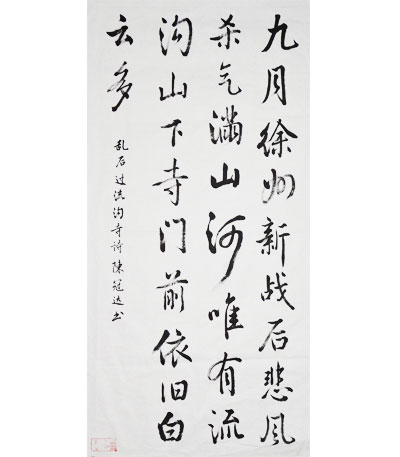 九月徐州新战后悲风
杀气满山河唯有流
沟山下寺门前依旧白
云多
乱后过流沟寺诗陳冠达书